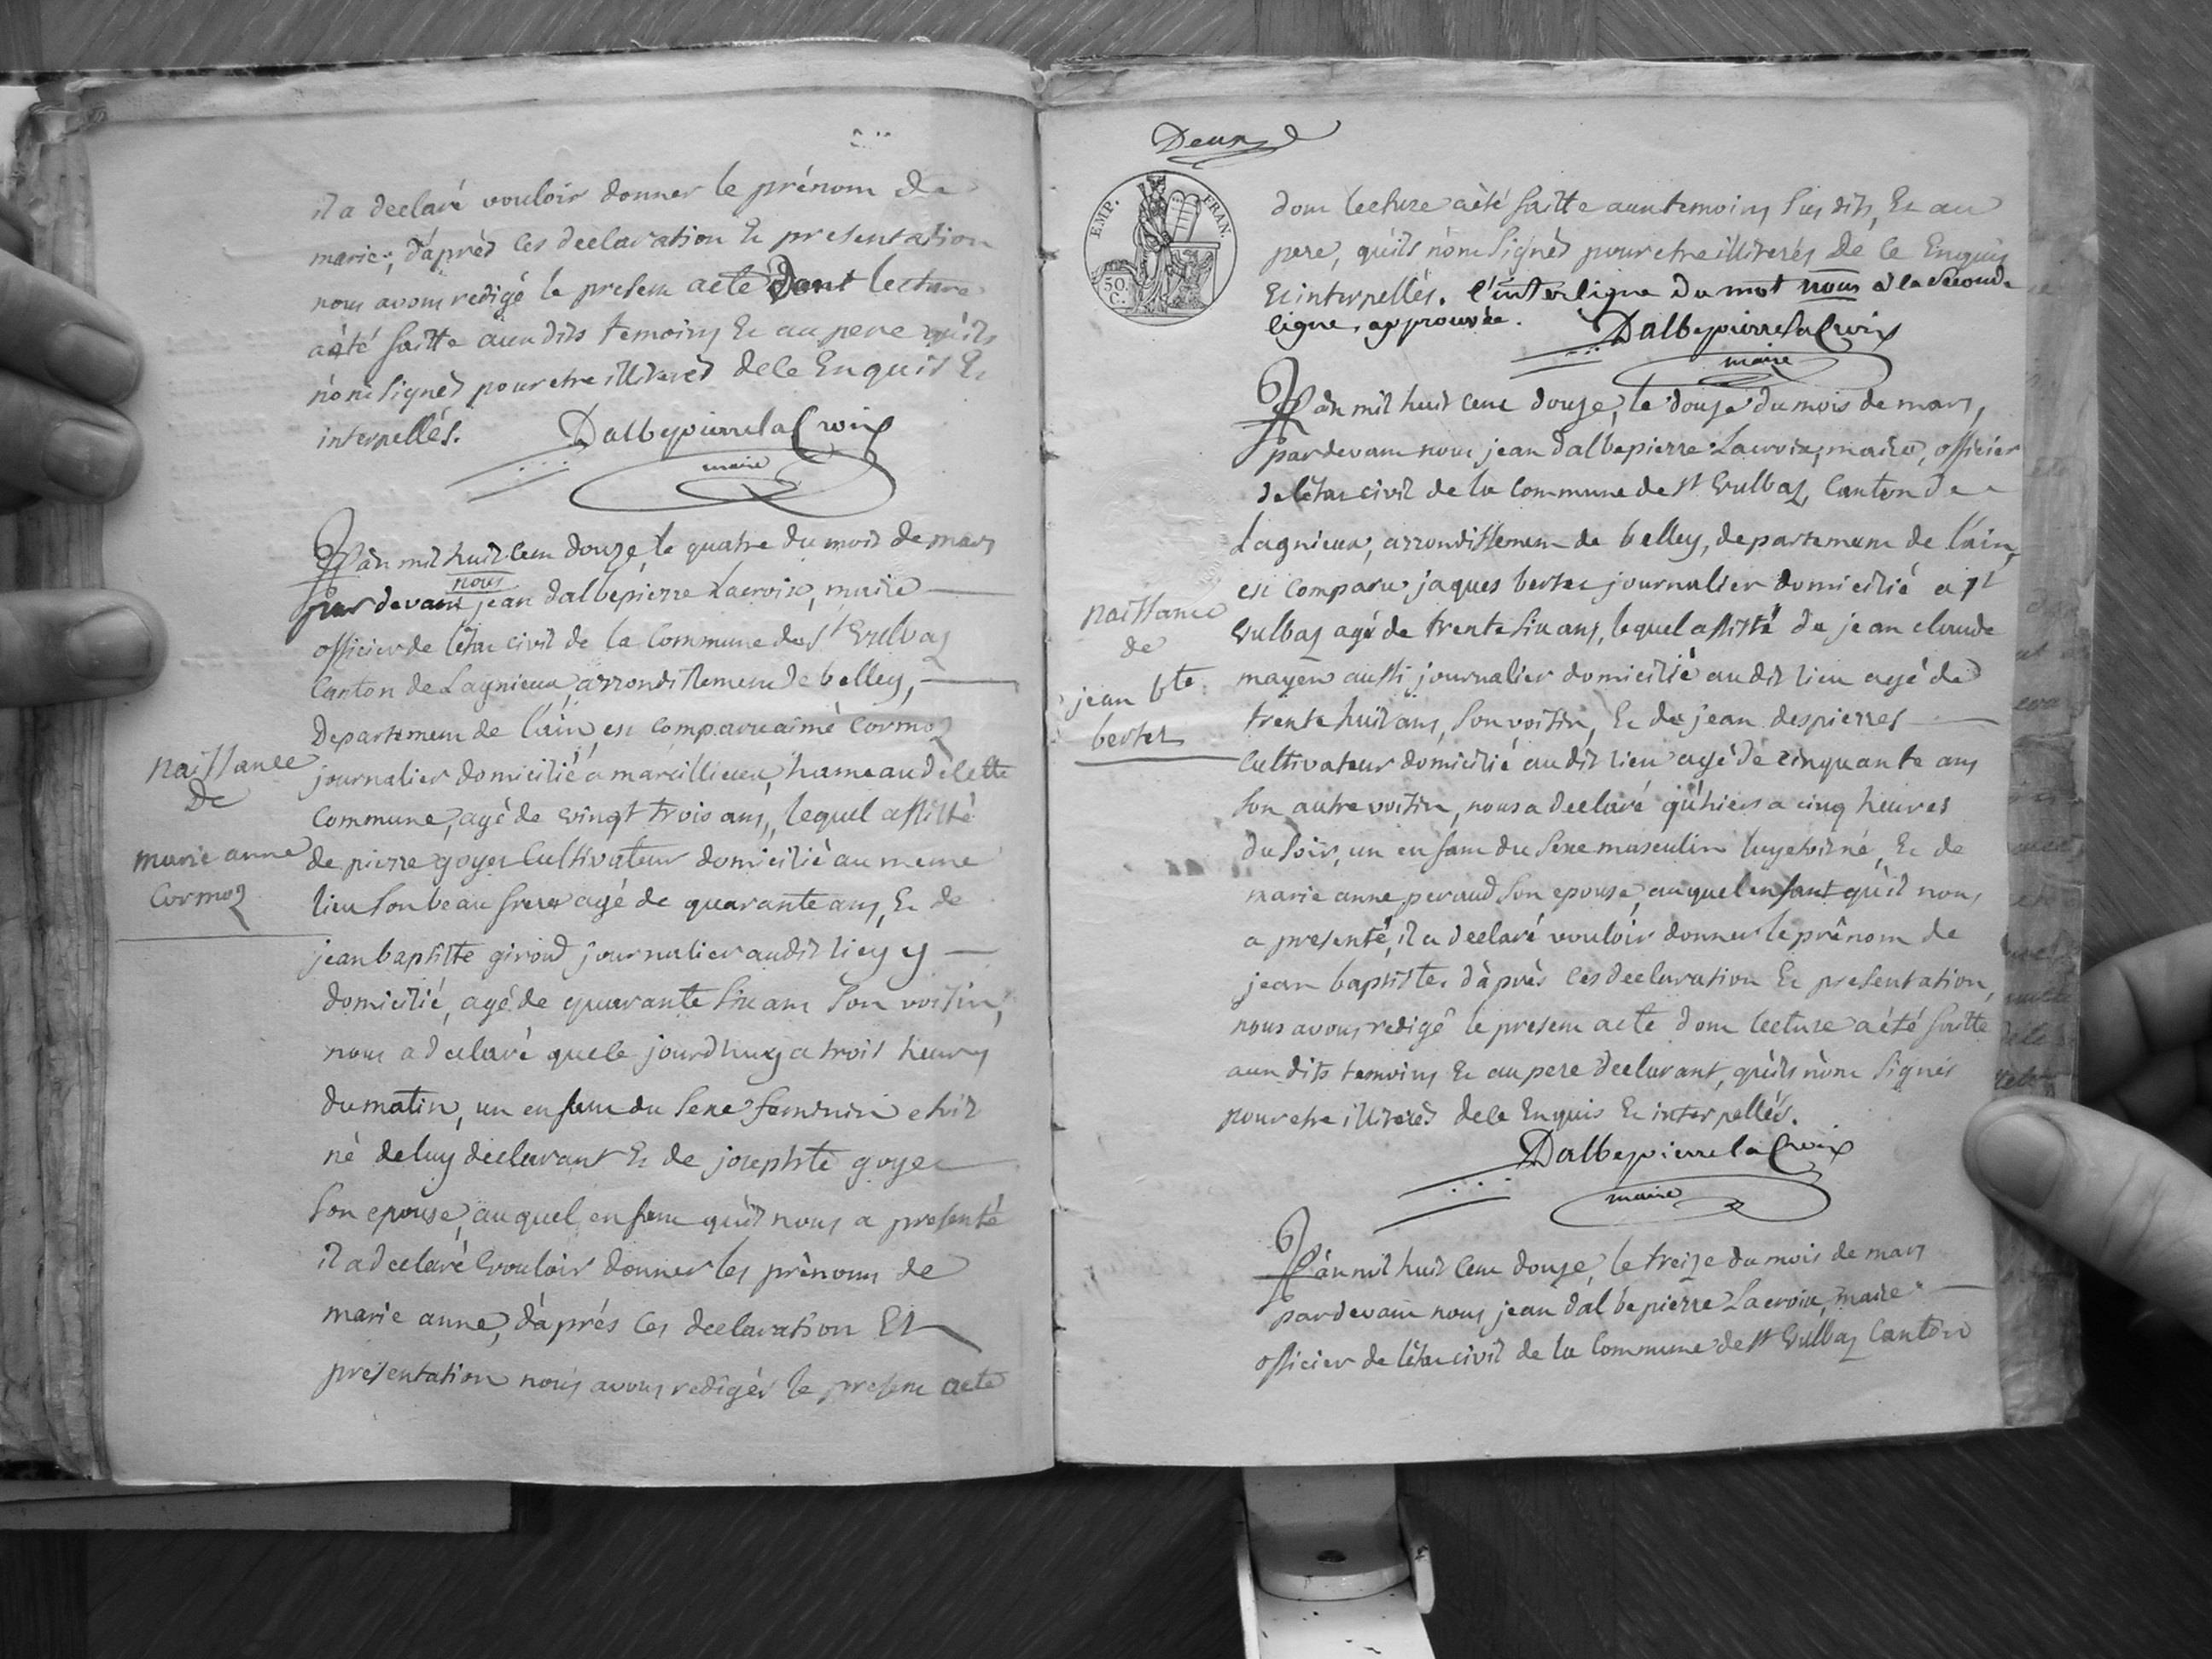 il a declaré vouloir donner le prénom de
marie, d'après ces declaration Et presentation
nous avons redigé le presem acte dont lecture
a été faitte aux dits temoins Et au pere qu'ils
n'ont signés pour etre illiterés de ce Enquis Et
interpellés. Dalbepierre la Croix
maire
L'an mil huit cent douze, le quatre du mois de mars
nous
par devant jean dalbepierre Lacroix, maire
officier de l'état civil de la commune de St Vulbas
Canton de Lagnieux, arrondissement de belley,
Departement de l'ain, est comparu aimé Cormoz
naissance
De
marie anne
Cormoz
journalier domicilié a marcillieux, hameau de cette
commune, agé de vingt trois ans, lequel assisté
de pierre goyer Cultivateur domicilié au meme
lieu son beau frere agé de quarante ans, Et de
jean baptiste giroud journalier audit lieu y
domicilié, agé de quarante six ans son voisin,
nous a declaré que le jourd'huy a trois heures
du matin, un enfant du sexe feminin etoit
né de luy declarant Et de josephte goyer
son epouse, auquel enfant qu'il nous a presenté
il a declaré vouloir donner les prénoms de
marie anne, d'après ces declaration Et
presentation nous avons redigés le present acte
Deux
EMP. FRAN.
50. C.
dont lecture a été faitte aux temoins sus dits, Et au
pere, qu'ils n'ont signés pour etre illiterés de ce Enquis
Et interpellés. l'interligne du mot nous a la seconde
ligne, approuvée. Dalbepierre la Croix
maire
L'an mil huit cent douze, le douze du mois de mars,
pardevant nous jean dalbepierre Lacroix, maire, officier
de l'état civil de la commune de St Vulbas, Canton de
Lagnieux, arrondissement de belley, departement de l'ain,
est comparu jaques berter journalier domicilié a St
naissance
de
jean bte
berter
Vulbas agé de trente six ans, lequel assisté de jean claude
mayen aussi journalier domicilié audit lieu agé de
trente huit ans, son voisin, Et de jean despierres
Cultivateur domicilié audit lieu agé de cinquante ans
son autre voisin, nous a declaré qu'hier a cinq heures
du soir, un enfant du sexe masculin luy etoit né, Et de
marie anne peraud son epouse, auquel enfant qu'il nous
a presenté, il a declaré vouloir donner le prénom de
jean baptiste, d'après ces declaration Et presentation,
nous avons redigé le present acte dont lecture a été faitte
aux dits temoins Et au pere declarant, qu'ils n'ont signés
pour etre illiterés de ce Enquis Et interpellés.
Dalbepierre la Croix
maire
L'an mil huit cent douze, le treize du mois de mars
pardevant nous jean dalbepierre Lacroix, maire
officier de l'état civil de la commune de St Vulbas Canton